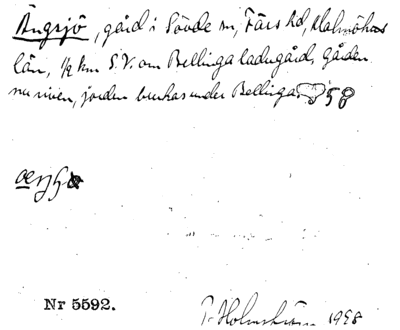 Ängsjö, gård i Sövde sn, Färs hd, Malmöhus
län, 1/2 km S.V. om Bellinga ladugård, gården
nu riven, jorden brukas under Bellinga. 58
Nr 5592.
P. Holmström 1928